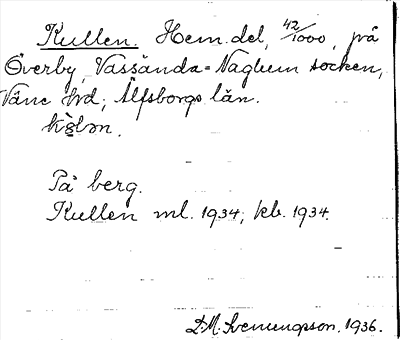 Kullen. Hem.del, 42/1000, på
Överby, Vassända-Naglum socken,
Väne hrd, Älfsborgs län.
På berg.
Kullen ml. 1934; kb. 1934.
D.M. Svenungsson. 1936.